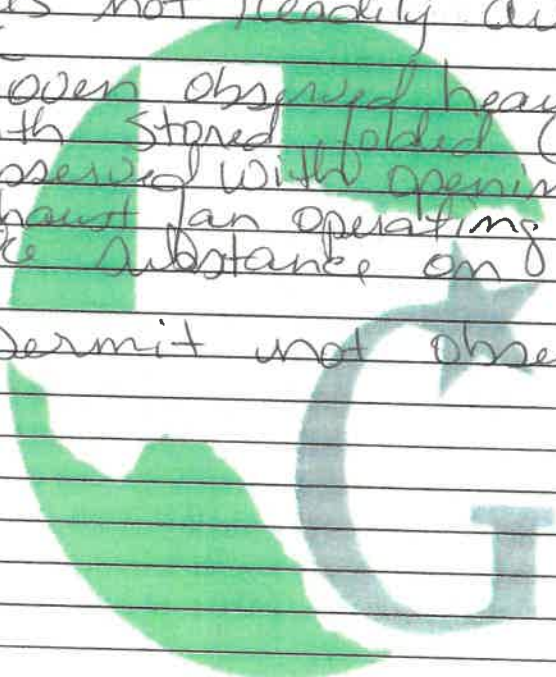 is not readily
oven observed
with stored folded
observed with
exhaust fan operating
substance on
permit not
G